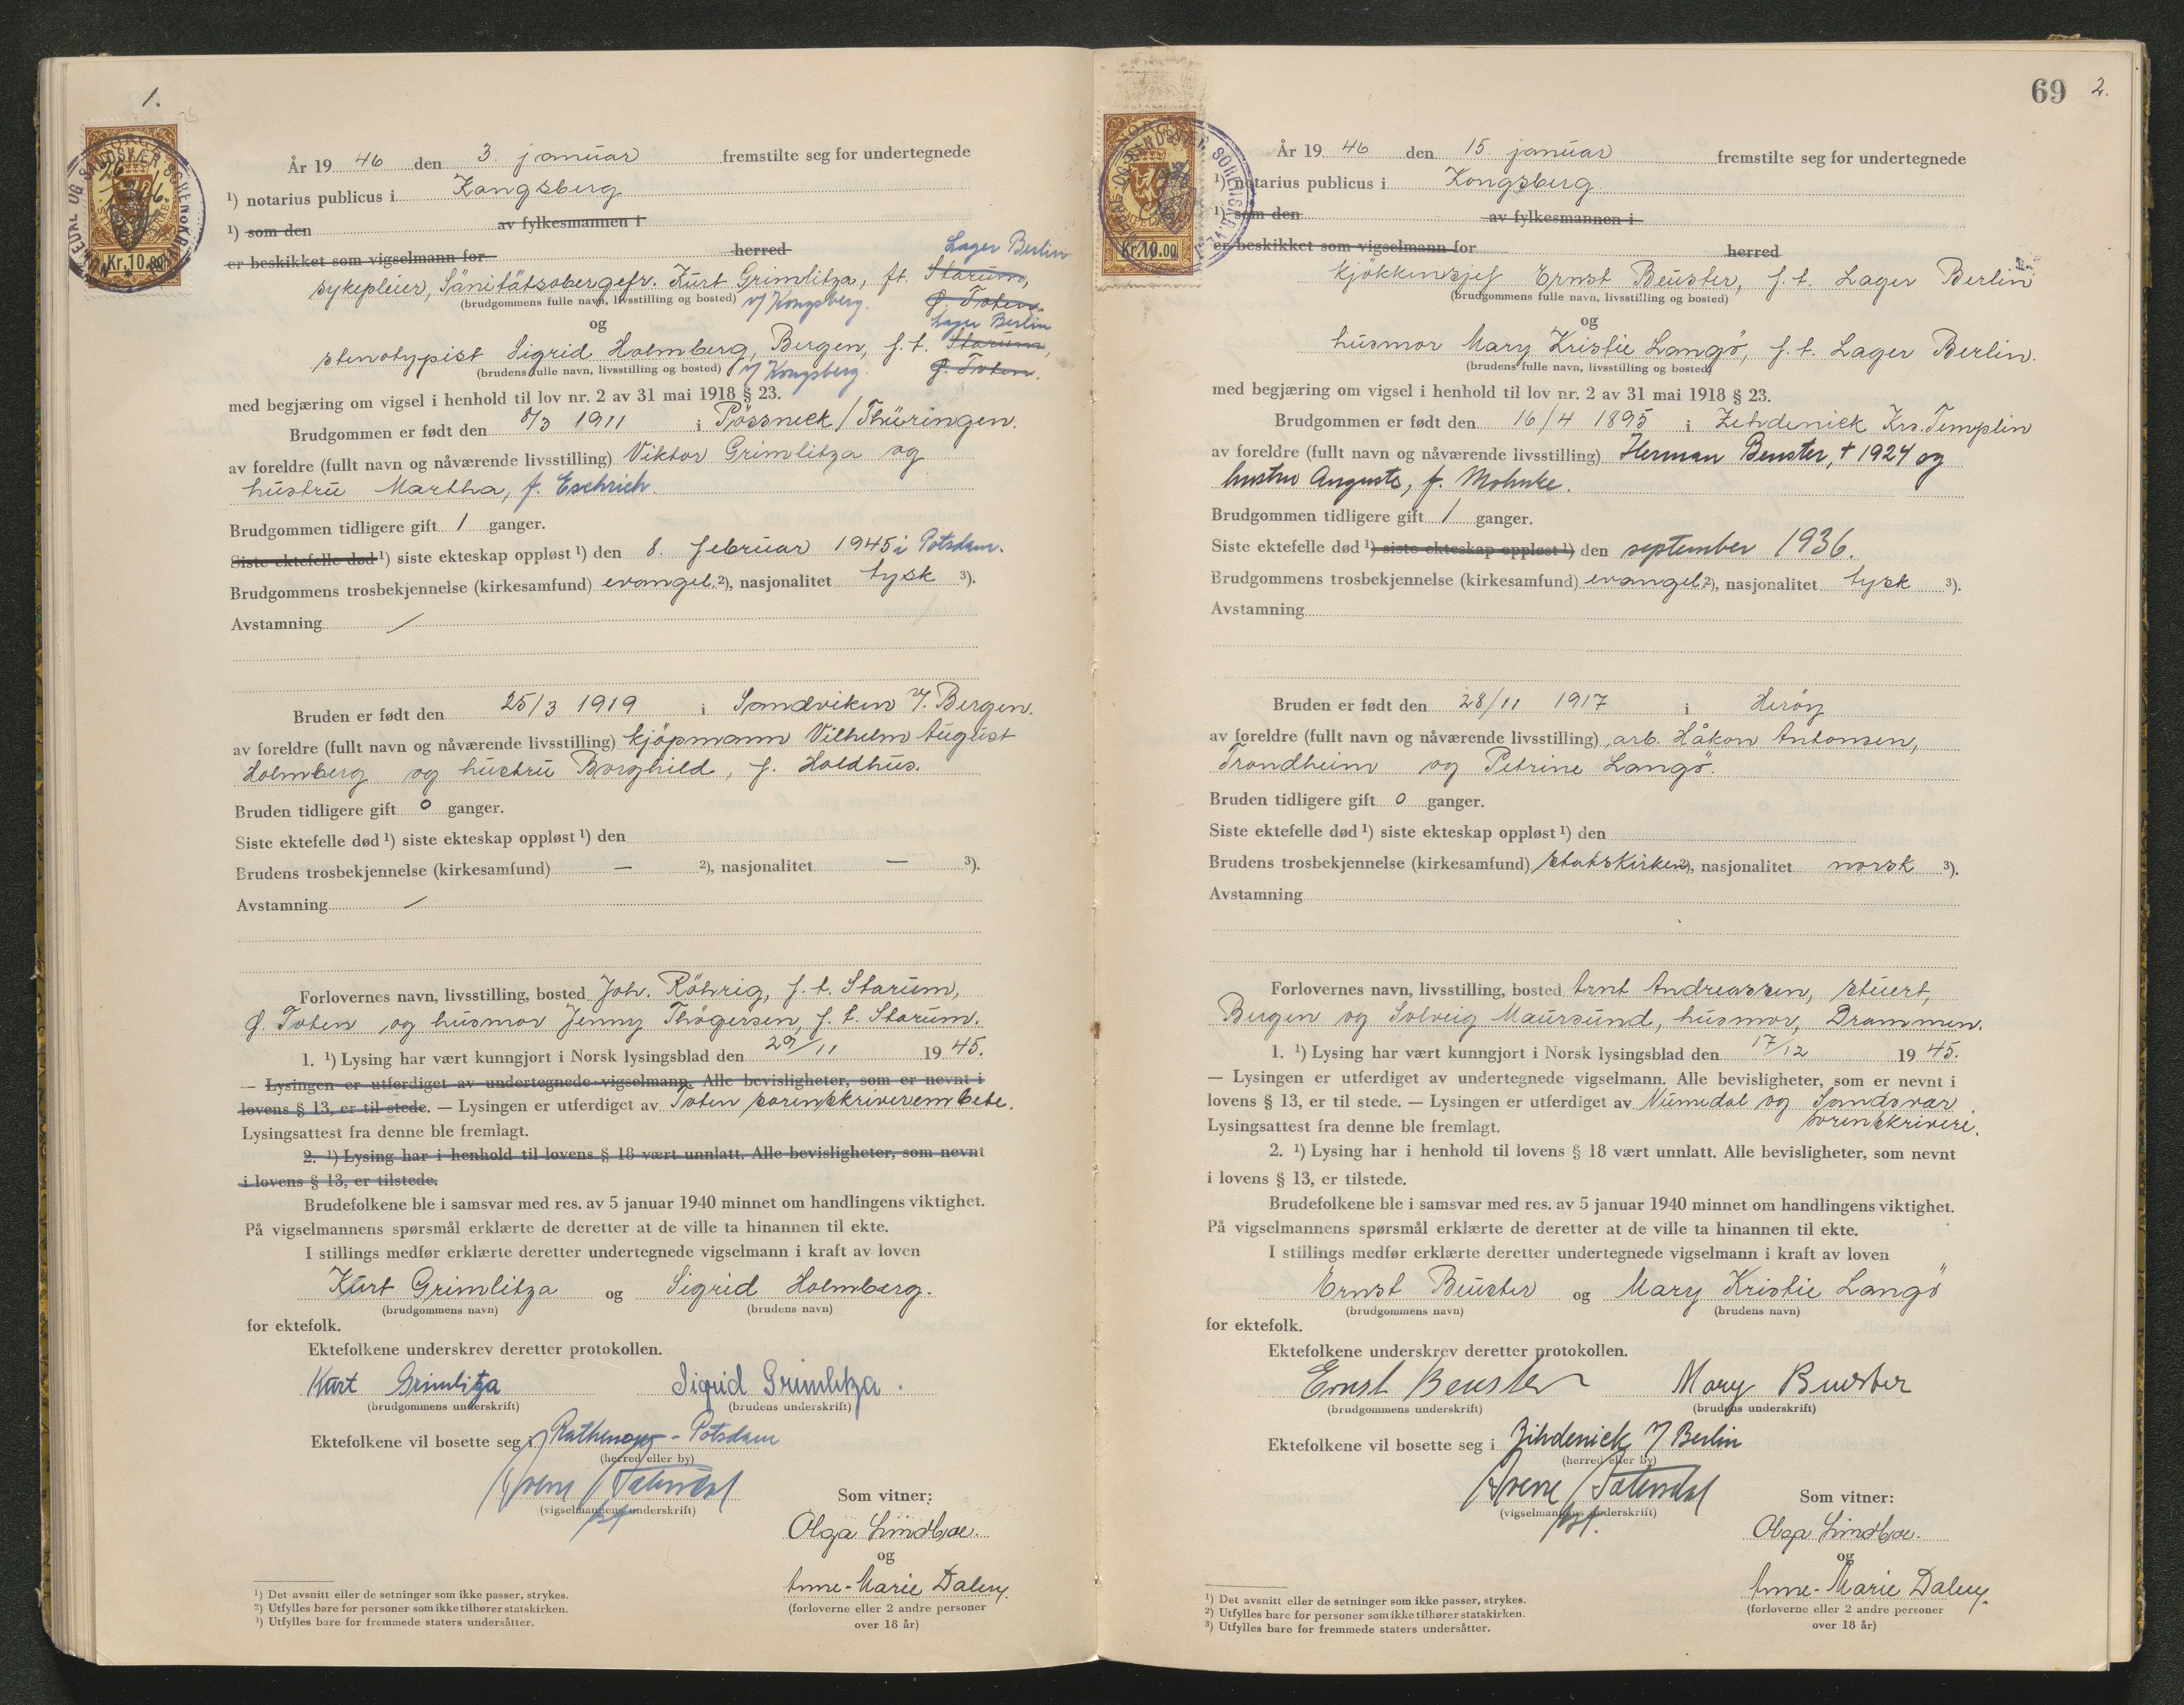 1.
År 19 46 den 3. januar fremstilte seg for undertegnede
¹) notarius publicus i Kongsberg
¹) som den av fylkesmannen i
er beskikket som vigselmann for herred
Lager Berlin
sykepleier, Sänitätsobergefr. Kurt Grimlitza, ft. Starum,
(brudgommens fulle navn, livsstilling og bosted) v/ Kongsberg. Ø. Toten.
og
Lager Berlin
stenotypist Sigrid Holmberg, Bergen, f.t. Starum,
(brudens fulle navn, livsstilling og bosted) v/ Kongsberg. Ø. Toten.
med begjæring om vigsel i henhold til lov nr. 2 av 31 mai 1918 § 23.
Brudgommen er født den 8/3 1911 i Pössneck / Thüringen.
av foreldre (fullt navn og nåværende livsstilling) Viktor Grimlitza og
hustru Martha, f. Eschrich.
Brudgommen tidligere gift 1 ganger.
Siste ektefelle død ¹) siste ekteskap oppløst ¹) den 8. februar 1945 i Potsdam.
Brudgommens trosbekjennelse (kirkesamfund) evangel. ²), nasjonalitet tysk ³).
Avstamning /
Bruden er født den 25/3 1919 i Sandviken v/ Bergen.
av foreldre (fullt navn og nåværende livsstilling) kjöpmann Vilhelm August
Holmberg og hustru Borghild, f. Holdhus.
Bruden tidligere gift 0 ganger.
Siste ektefelle død ¹) siste ekteskap oppløst ¹) den
Brudens trosbekjennelse (kirkesamfund) — ²), nasjonalitet — ³).
Avstamning /
Forlovernes navn, livsstilling, bosted Joh. Röhrig, f.t. Starum,
Ø. Toten og husmor Jenny Thögersen, f.t. Starum.
1. ¹) Lysing har vært kunngjort i Norsk lysingsblad den 29/11 19 45.
— Lysingen er utferdiget av undertegnede vigselmann. Alle bevisligheter, som er nevnt i
lovens § 13, er til stede. — Lysingen er utferdiget av Toten sorenskriverembete.
Lysingsattest fra denne ble fremlagt.
2. ¹) Lysing har i henhold til lovens § 18 vært unnlatt. Alle bevisligheter, som nevnt
i lovens § 13, er tilstede.
Brudefolkene ble i samsvar med res. av 5 januar 1940 minnet om handlingens viktighet.
På vigselmannens spørsmål erklærte de deretter at de ville ta hinannen til ekte.
I stillings medfør erklærte deretter undertegnede vigselmann i kraft av loven
Kurt Grimlitza og Sigrid Holmberg.
(brudgommens navn) (brudens navn)
for ektefolk.
Ektefolkene underskrev deretter protokollen.
Kurt Grimlitza Sigrid Grimlitza.
(brudgommens underskrift) (brudens underskrift)
Ektefolkene vil bosette seg i Rathenow - Potsdam
(herred eller by)
(vigselmannens underskrift)
Som vitner:
Olga Lindboe.
og
Anne-Marie Daley.
(forloverne eller 2 andre personer
over 18 år)
¹) Det avsnitt eller de setninger som ikke passer, strykes.
²) Utfylles bare for personer som ikke tilhører statskirken.
³) Utfylles bare for fremmede staters undersåtter.
Kr. 10.00
69 2.
År 19 46 den 15. januar fremstilte seg for undertegnede
¹) notarius publicus i Kongsberg
¹) som den av fylkesmannen i
er beskikket som vigselmann for herred
kjökkensjef Ernst Beuster, f.t. Lager Berlin
(brudgommens fulle navn, livsstilling og bosted)
og
husmor Mary Kristie Langö, f.t. Lager Berlin.
(brudens fulle navn, livsstilling og bosted)
med begjæring om vigsel i henhold til lov nr. 2 av 31 mai 1918 § 23.
Brudgommen er født den 16/4 1895 i Zehdenick Krs. Templin
av foreldre (fullt navn og nåværende livsstilling) Herman Beuster, † 1924 og
hustru Auguste, f. Mohnke.
Brudgommen tidligere gift 1 ganger.
Siste ektefelle død ¹) siste ekteskap oppløst ¹) den september 1936.
Brudgommens trosbekjennelse (kirkesamfund) evangel ²), nasjonalitet tysk ³).
Avstamning
Bruden er født den 28/11 1917 i Heröy
av foreldre (fullt navn og nåværende livsstilling) arb. Håkon Antonsen,
Trondheim og Petrine Langö.
Bruden tidligere gift 0 ganger.
Siste ektefelle død ¹) siste ekteskap oppløst ¹) den
Brudens trosbekjennelse (kirkesamfund) statskirken ²), nasjonalitet norsk ³).
Avstamning
Forlovernes navn, livsstilling, bosted Arnt Andreassen, stuert,
Bergen og Solveig Maursund, husmor, Drammen.
1. ¹) Lysing har vært kunngjort i Norsk lysingsblad den 17/12 19 45.
— Lysingen er utferdiget av undertegnede vigselmann. Alle bevisligheter, som er nevnt i
lovens § 13, er til stede. — Lysingen er utferdiget av Numedal og Sandsvær
Lysingsattest fra denne ble fremlagt. sorenskriveri.
2. ¹) Lysing har i henhold til lovens § 18 vært unnlatt. Alle bevisligheter, som nevnt
i lovens § 13, er tilstede.
Brudefolkene ble i samsvar med res. av 5 januar 1940 minnet om handlingens viktighet.
På vigselmannens spørsmål erklærte de deretter at de ville ta hinannen til ekte.
I stillings medfør erklærte deretter undertegnede vigselmann i kraft av loven
Ernst Beuster og Mary Kristie Langö
(brudgommens navn) (brudens navn)
for ektefolk.
Ektefolkene underskrev deretter protokollen.
Ernst Beuster Mary Beuster
(brudgommens underskrift) (brudens underskrift)
Ektefolkene vil bosette seg i Zihdenick v/ Berlin
(herred eller by)
(vigselmannens underskrift)
Som vitner:
Olga Lindboe.
og
Anne-Marie Daley.
(forloverne eller 2 andre personer
over 18 år)
¹) Det avsnitt eller de setninger som ikke passer, strykes.
²) Utfylles bare for personer som ikke tilhører statskirken.
³) Utfylles bare for fremmede staters undersåtter.
Kr. 10.00